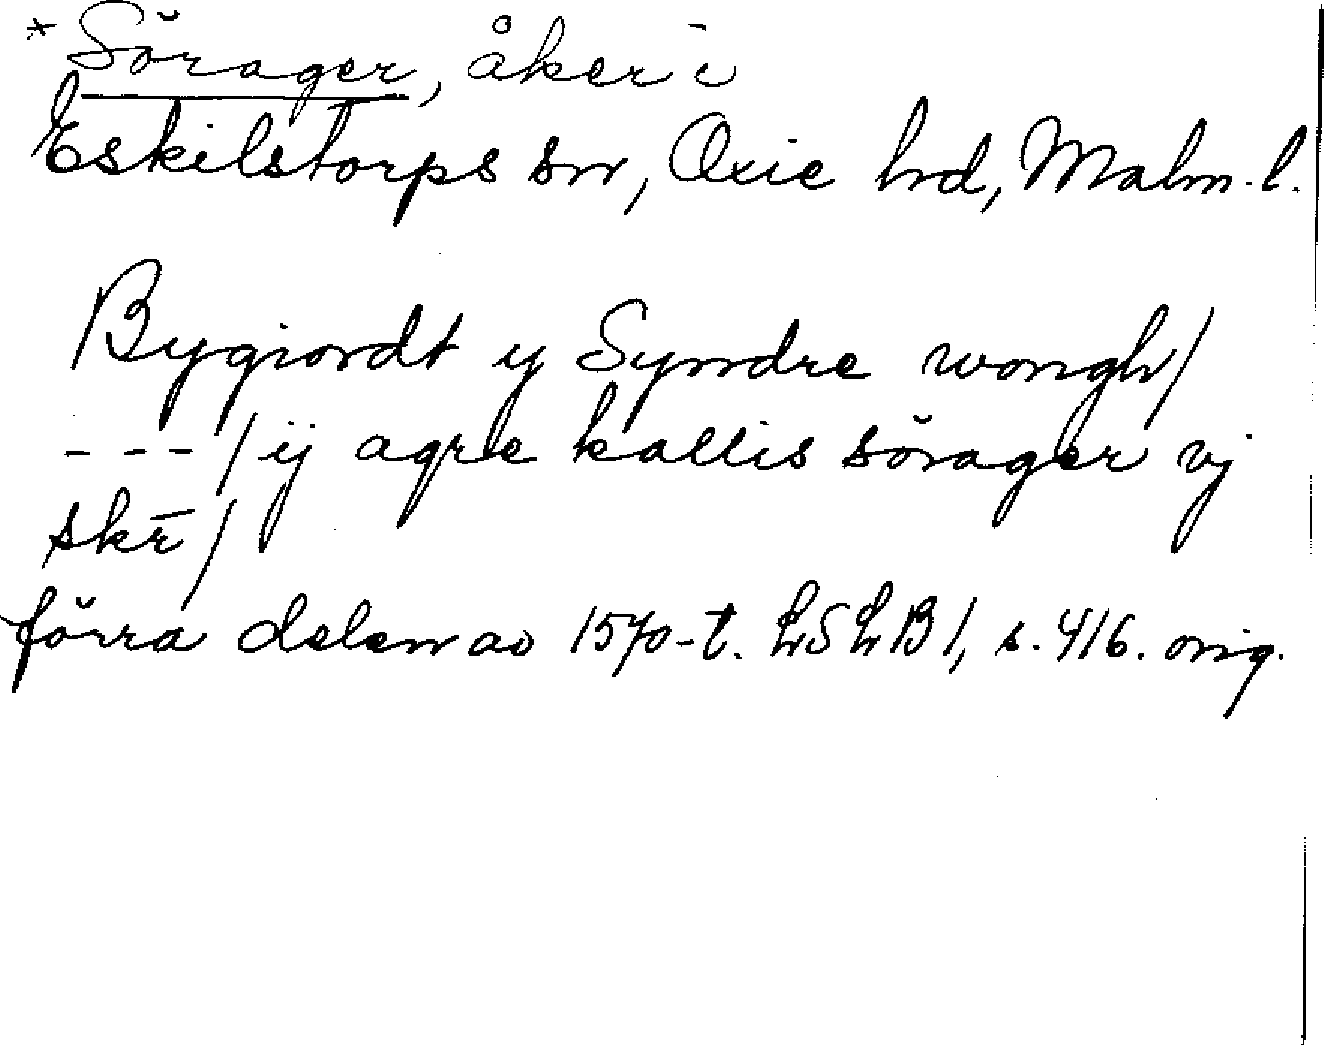 *Sörager, åker i
Eskilstorps sn, Oxie hd, Malm. l.
Bygiordt y Syndre wongh/
---/ ij agre kallis sörager vj
skr̄/
förra delen av 1570-t. LSLB 1, s. 416. orig.